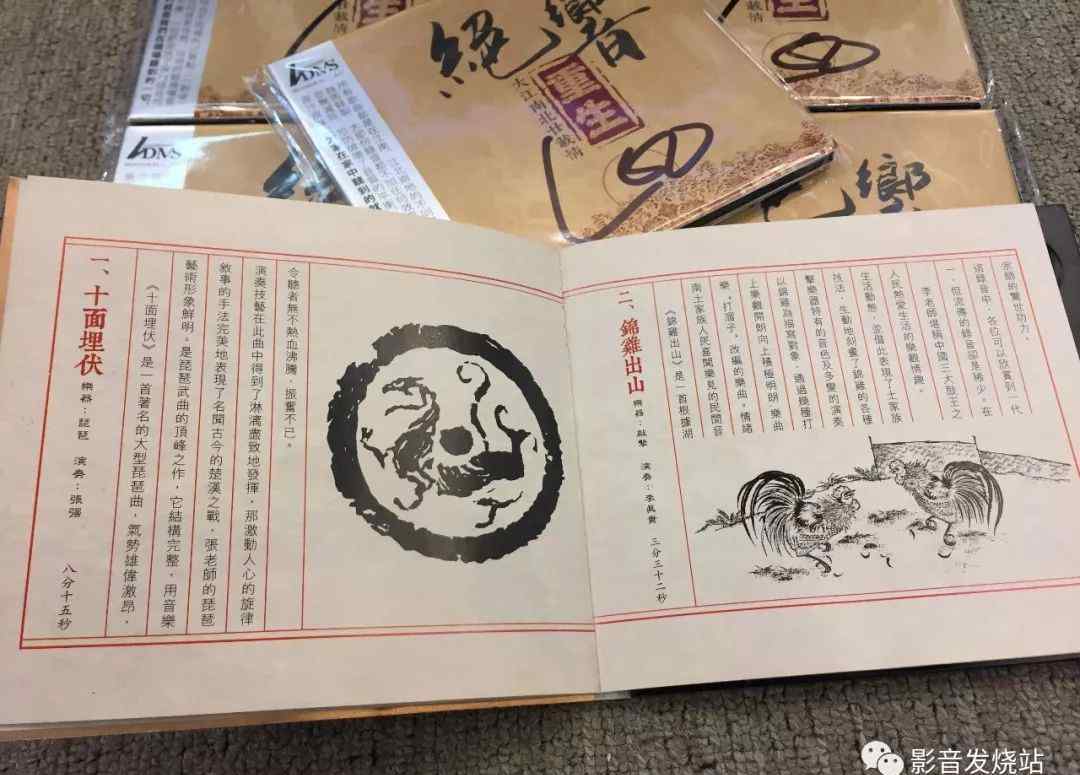 絕響
重生
大江南北廿載情
DMS
DMS
響
一、十面埋伏 樂器：琵琶 演奏：張強 八分十五秒
《十面埋伏》是一首著名的大型琵琶曲，氣勢雄偉激昂，
藝術形象鮮明。是琵琶武曲的頂峰之作，它結構完整，用音樂
敘事的手法完美地表現了名聞古今的楚漢之戰，張老師的琵琶
演奏技藝在此曲中得到了淋漓盡致地發揮，那激動人心的旋律
令聽者無不熱血沸騰，振奮不已。
二、錦雞出山 樂器：敲擊 演奏：李真貴 三分三十二秒
《錦雞出山》是一首根據湖
南土家族人民喜聞樂見的民間音
樂，打溜子，改編的樂曲。情緒
上樂觀開朗向上積極明朗 樂曲
以錦雞為描寫對象，透過幾種打
擊樂器特有的音色及多變的演奏
技法，生動地刻畫了錦雞的各種
生活動態，並借此表現了土家族
人民熱愛生活的樂觀情趣。
李老師堪稱中國三大鼓王之
一，但流傳的錄音卻是稀少。在
這錄音中，各位可以欣賞到一代
宗師的驚世功力。
影音发烧站